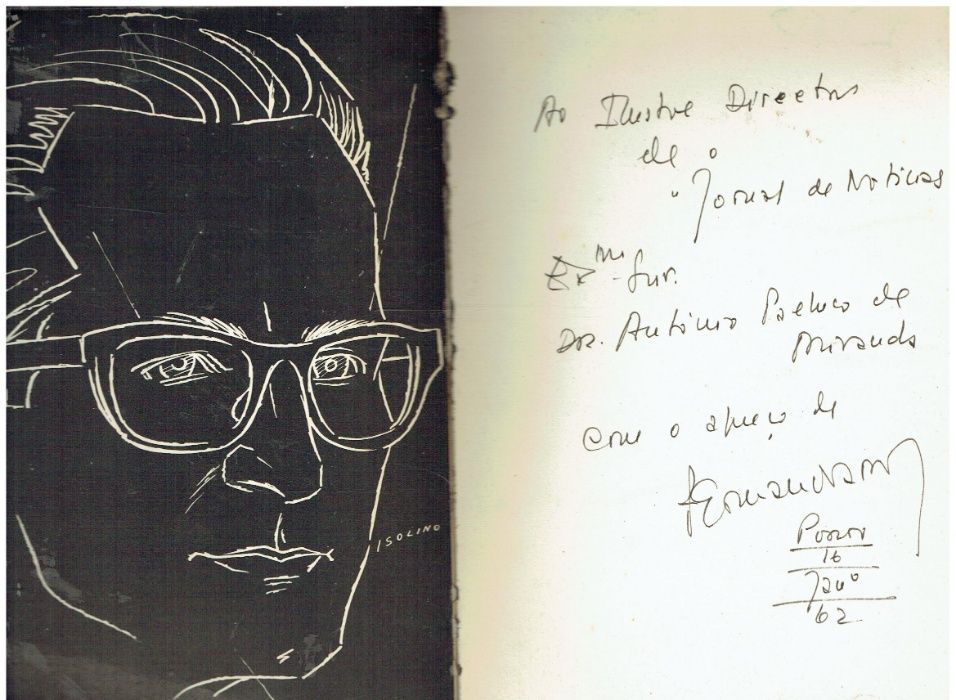 ISOLINO
Ao Ilustre Director
de o
"Jornal de Notícias
Exmo. Snr.
Dor. António Pacheco de
Miranda
Com o apreço de
16
Janº
62